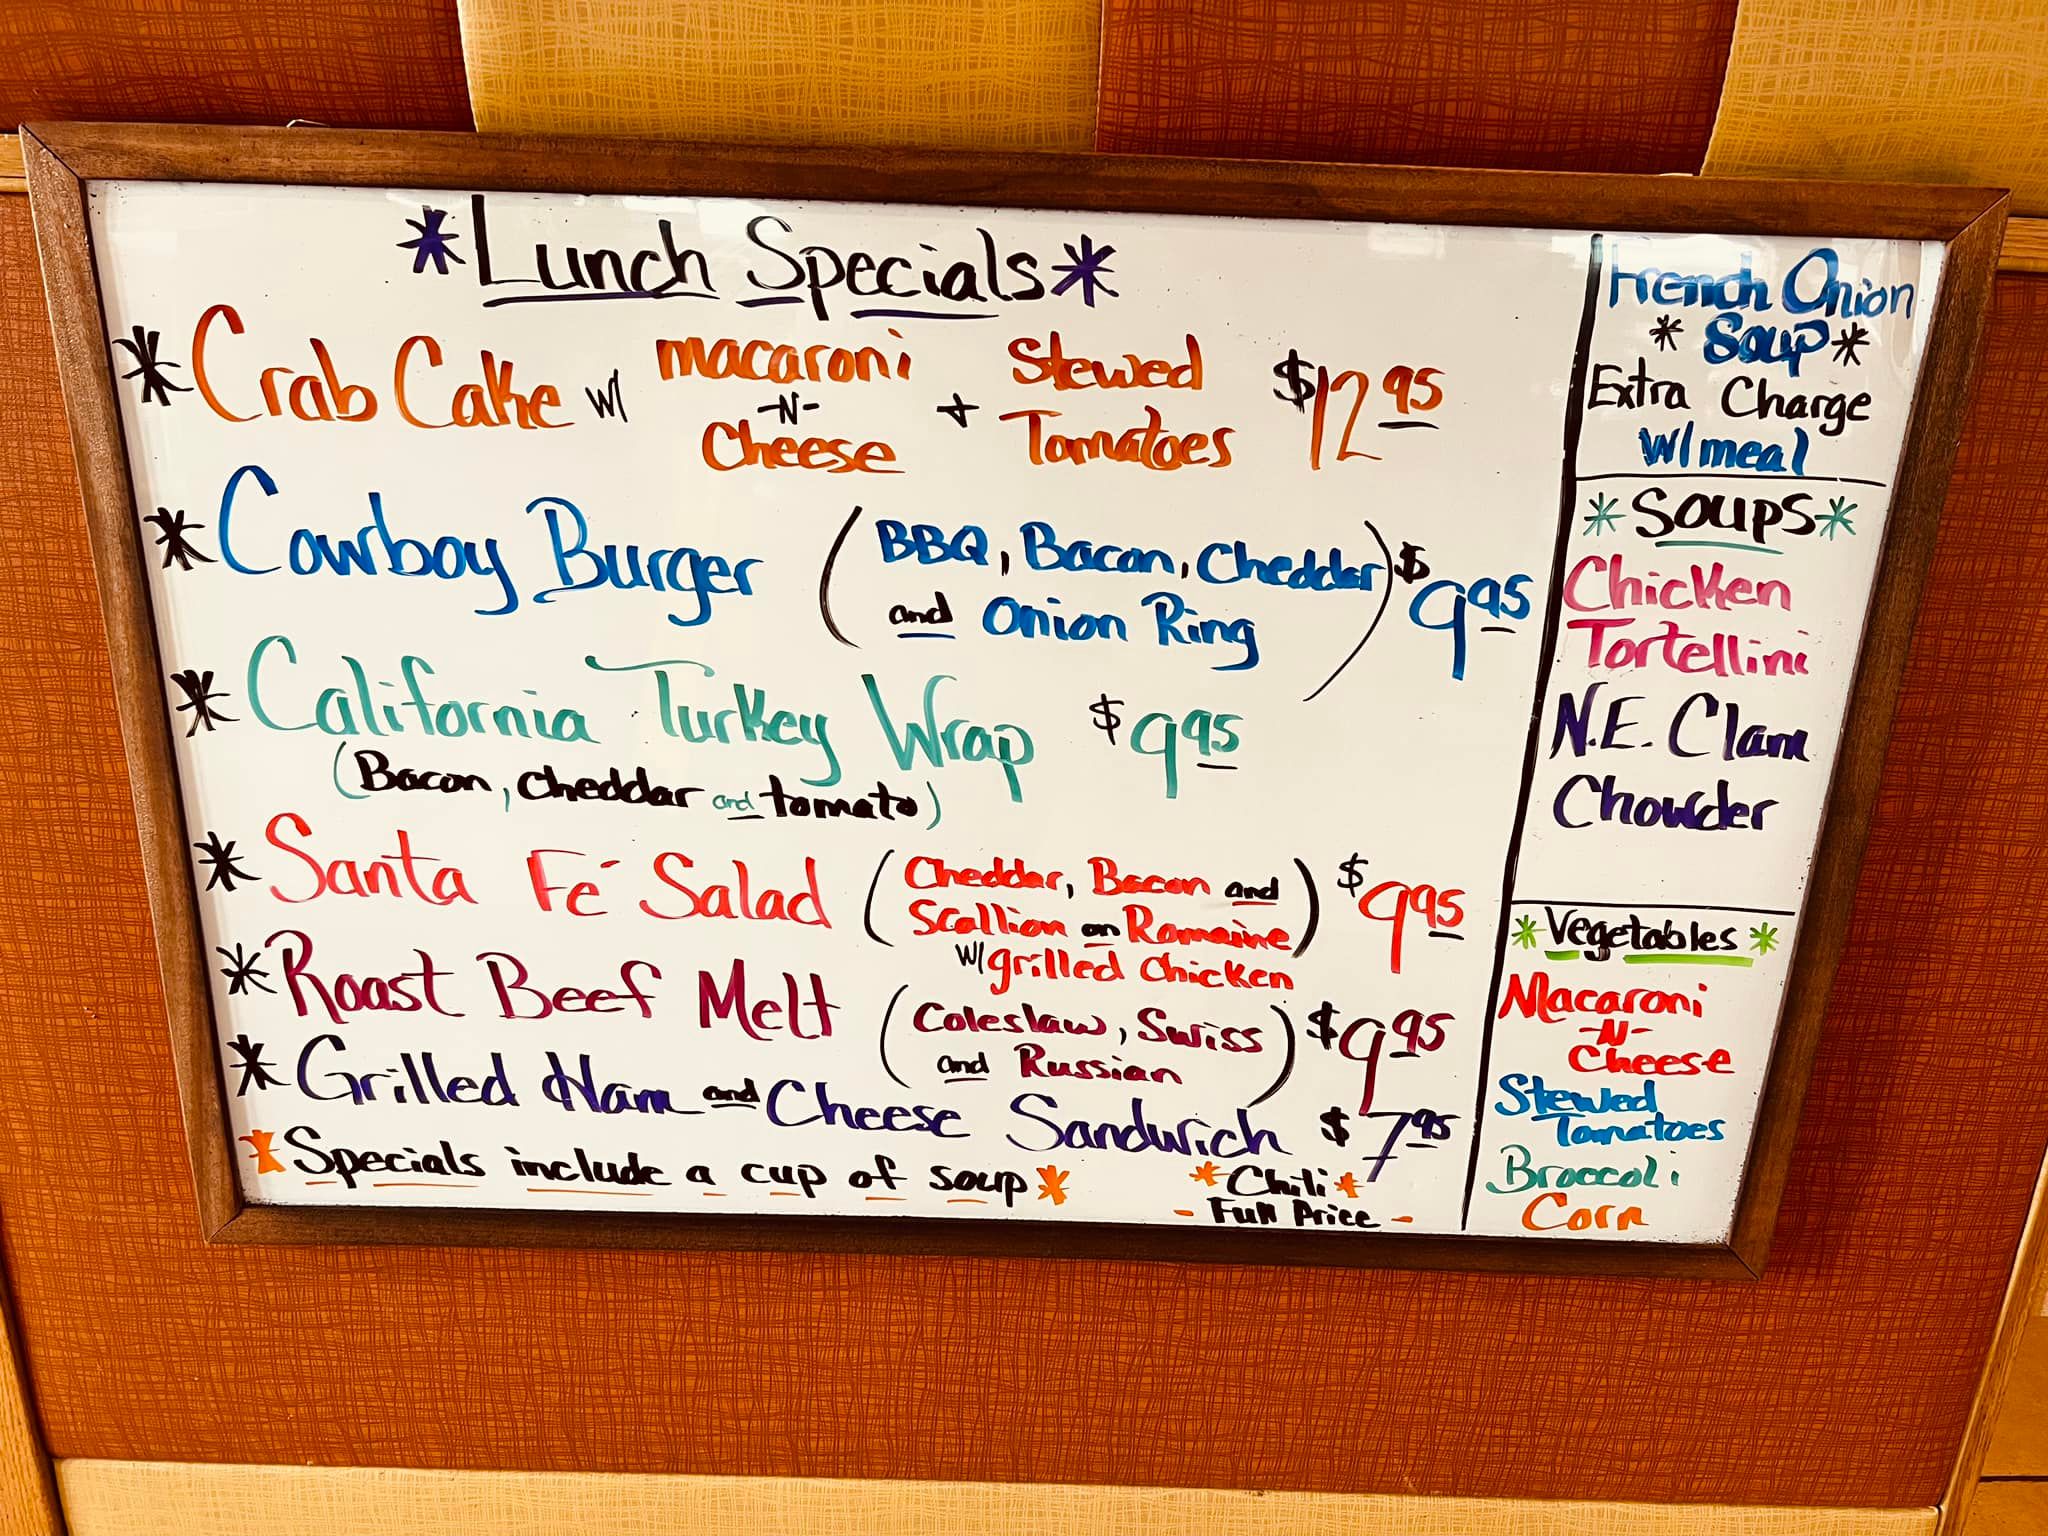 *Lunch Specials*
*Crab Cake w/ macaroni -N- Cheese + Stewed Tomatoes $12.95
*Cowboy Burger (BBQ, Bacon, Cheddar and Onion Ring) $9.95
*California Turkey Wrap $9.95
(Bacon, Cheddar and tomato)
*Santa Fé Salad (Cheddar, Bacon and
Scallion on Romaine) $9.95
w/ grilled chicken
*Roast Beef Melt (Coleslaw, Swiss
and Russian) $9.95
*Grilled Ham and Cheese Sandwich $7.95
*Specials include a cup of soup*
*Chili*
- Full Price -
French Onion
*Soup*
Extra Charge
w/meal
*Soups*
Chicken
Tortellini
N.E. Clam
Chowder
*Vegetables*
Macaroni
-N-
Cheese
Stewed
Tomatoes
Broccoli
Corn